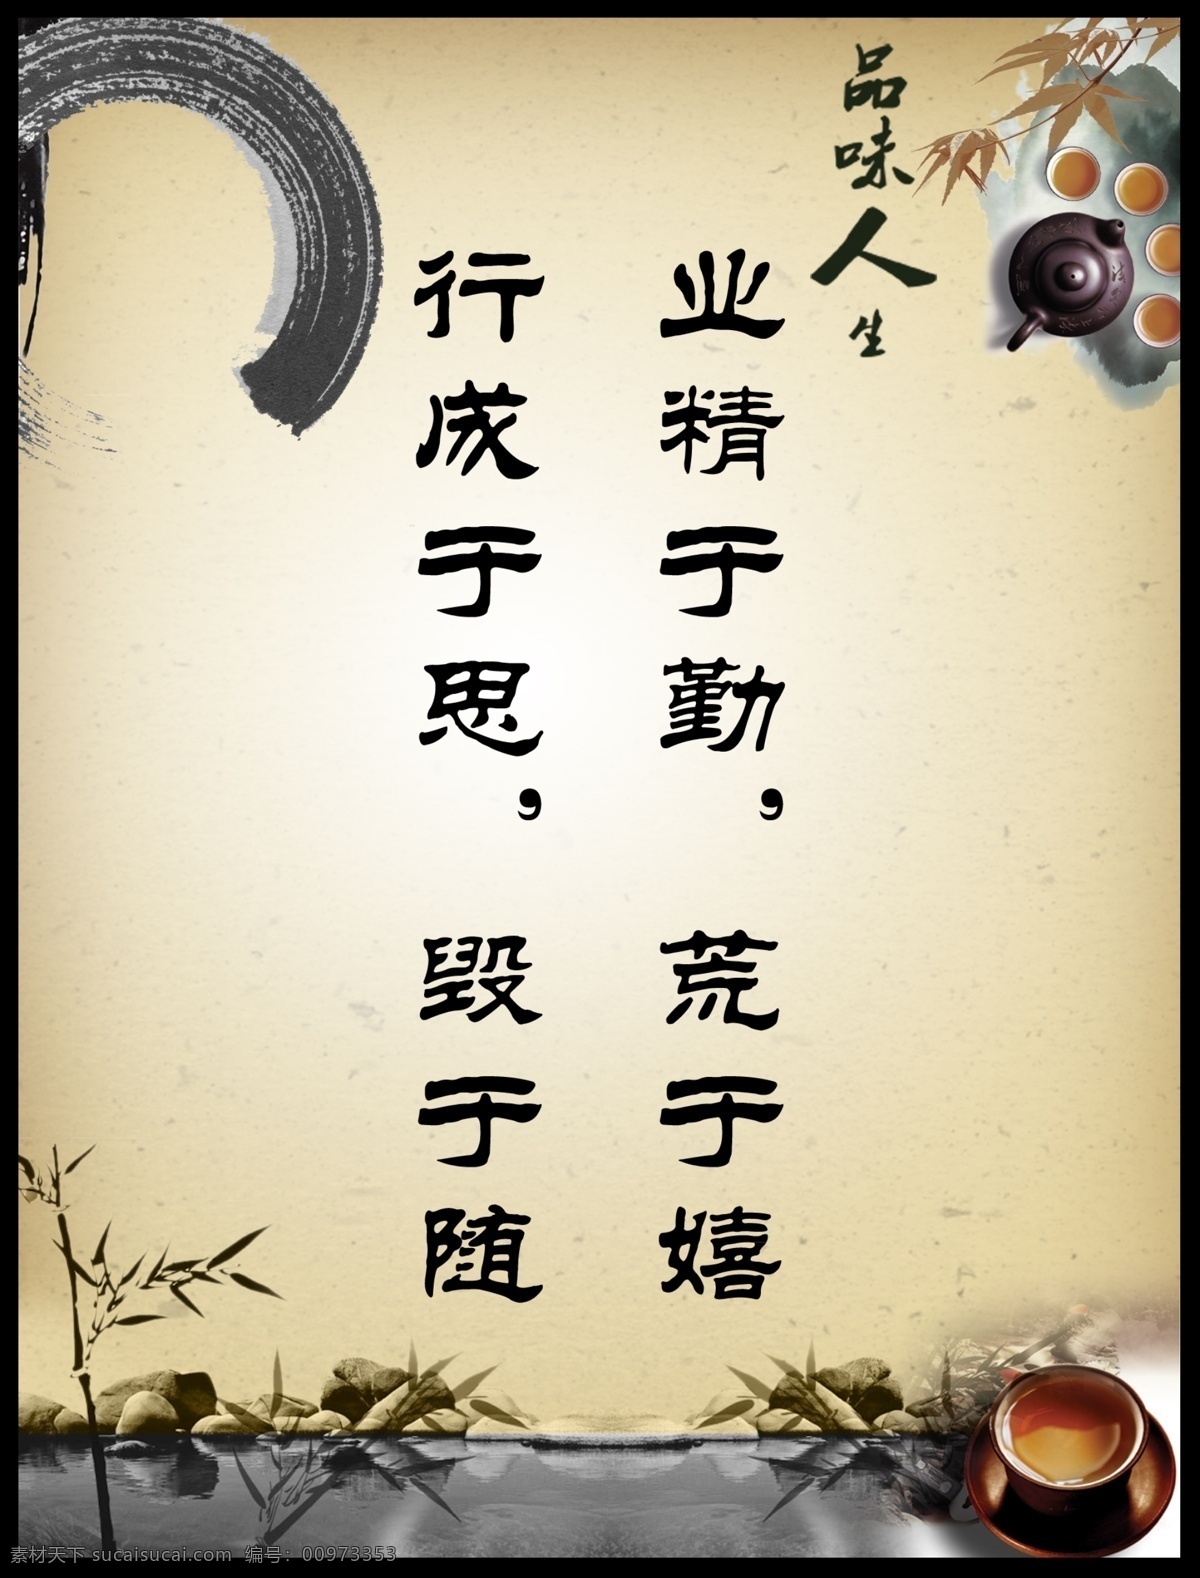 品味人生
业精于勤，荒于嬉
行成于思，毁于随
素材天下 sucaisucai.com 编号：00973353